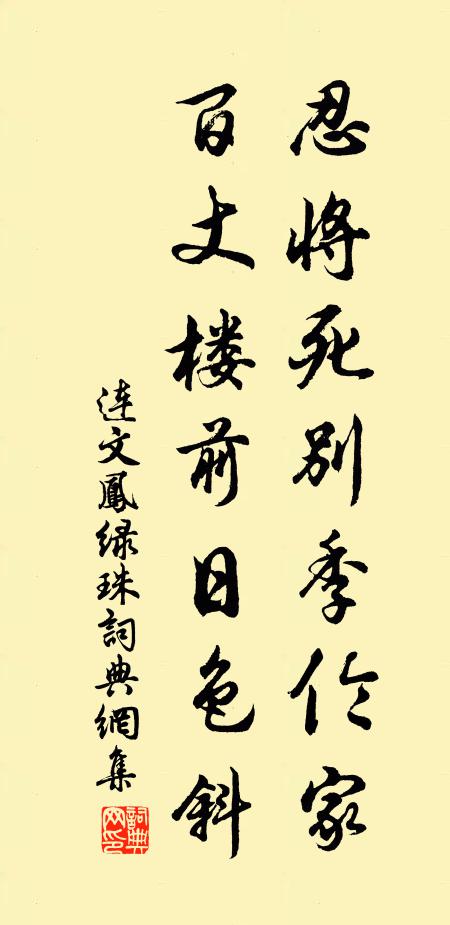 忍将死别季伦家
百丈楼前日色斜
連文鳳緑珠詞典網集
詞典网印